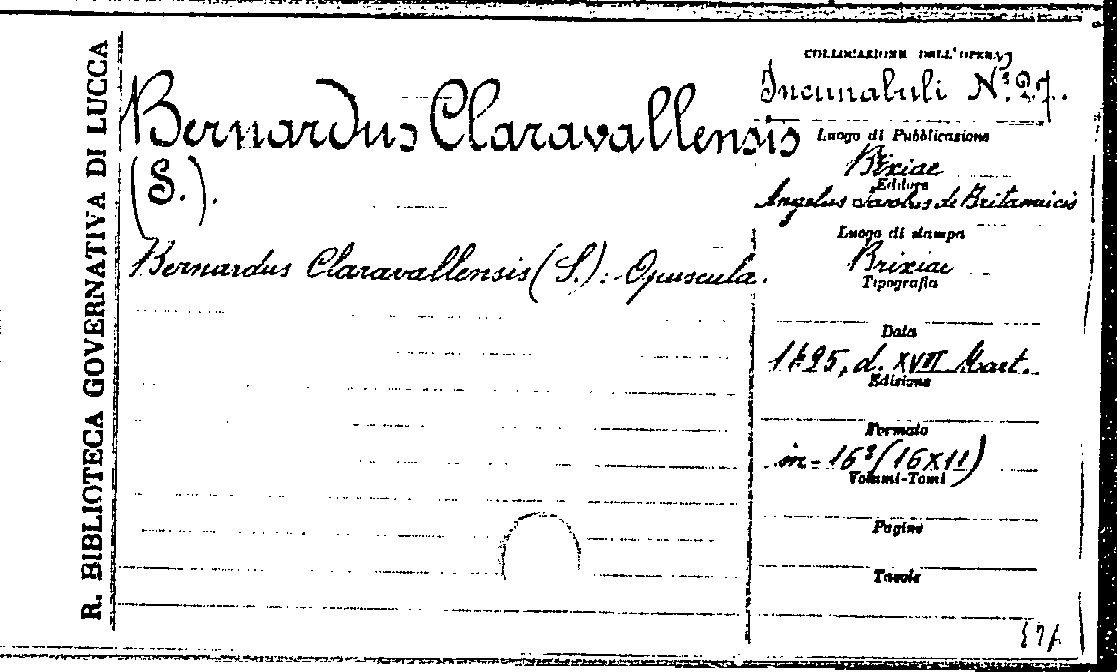 R. BIBLIOTECA GOVERNATIVA DI LUCCA
Bernardus Claravallensis
(S.).
Bernardus Claravallensis (S.): Opuscula.
COLLOCAZIONE DELL'OPERA
Incunabuli N.º 27.
Luogo di Pubblicazione
Brixiae
Editore
Angelus Jacobus de Britannicis
Luogo di stampa
Brixiae
Tipografia
Data
1495, d. XVIII Mart.
Edizione
Formato
in-16º (16x11)
Volumi-Tomi
Pagine
Tavole